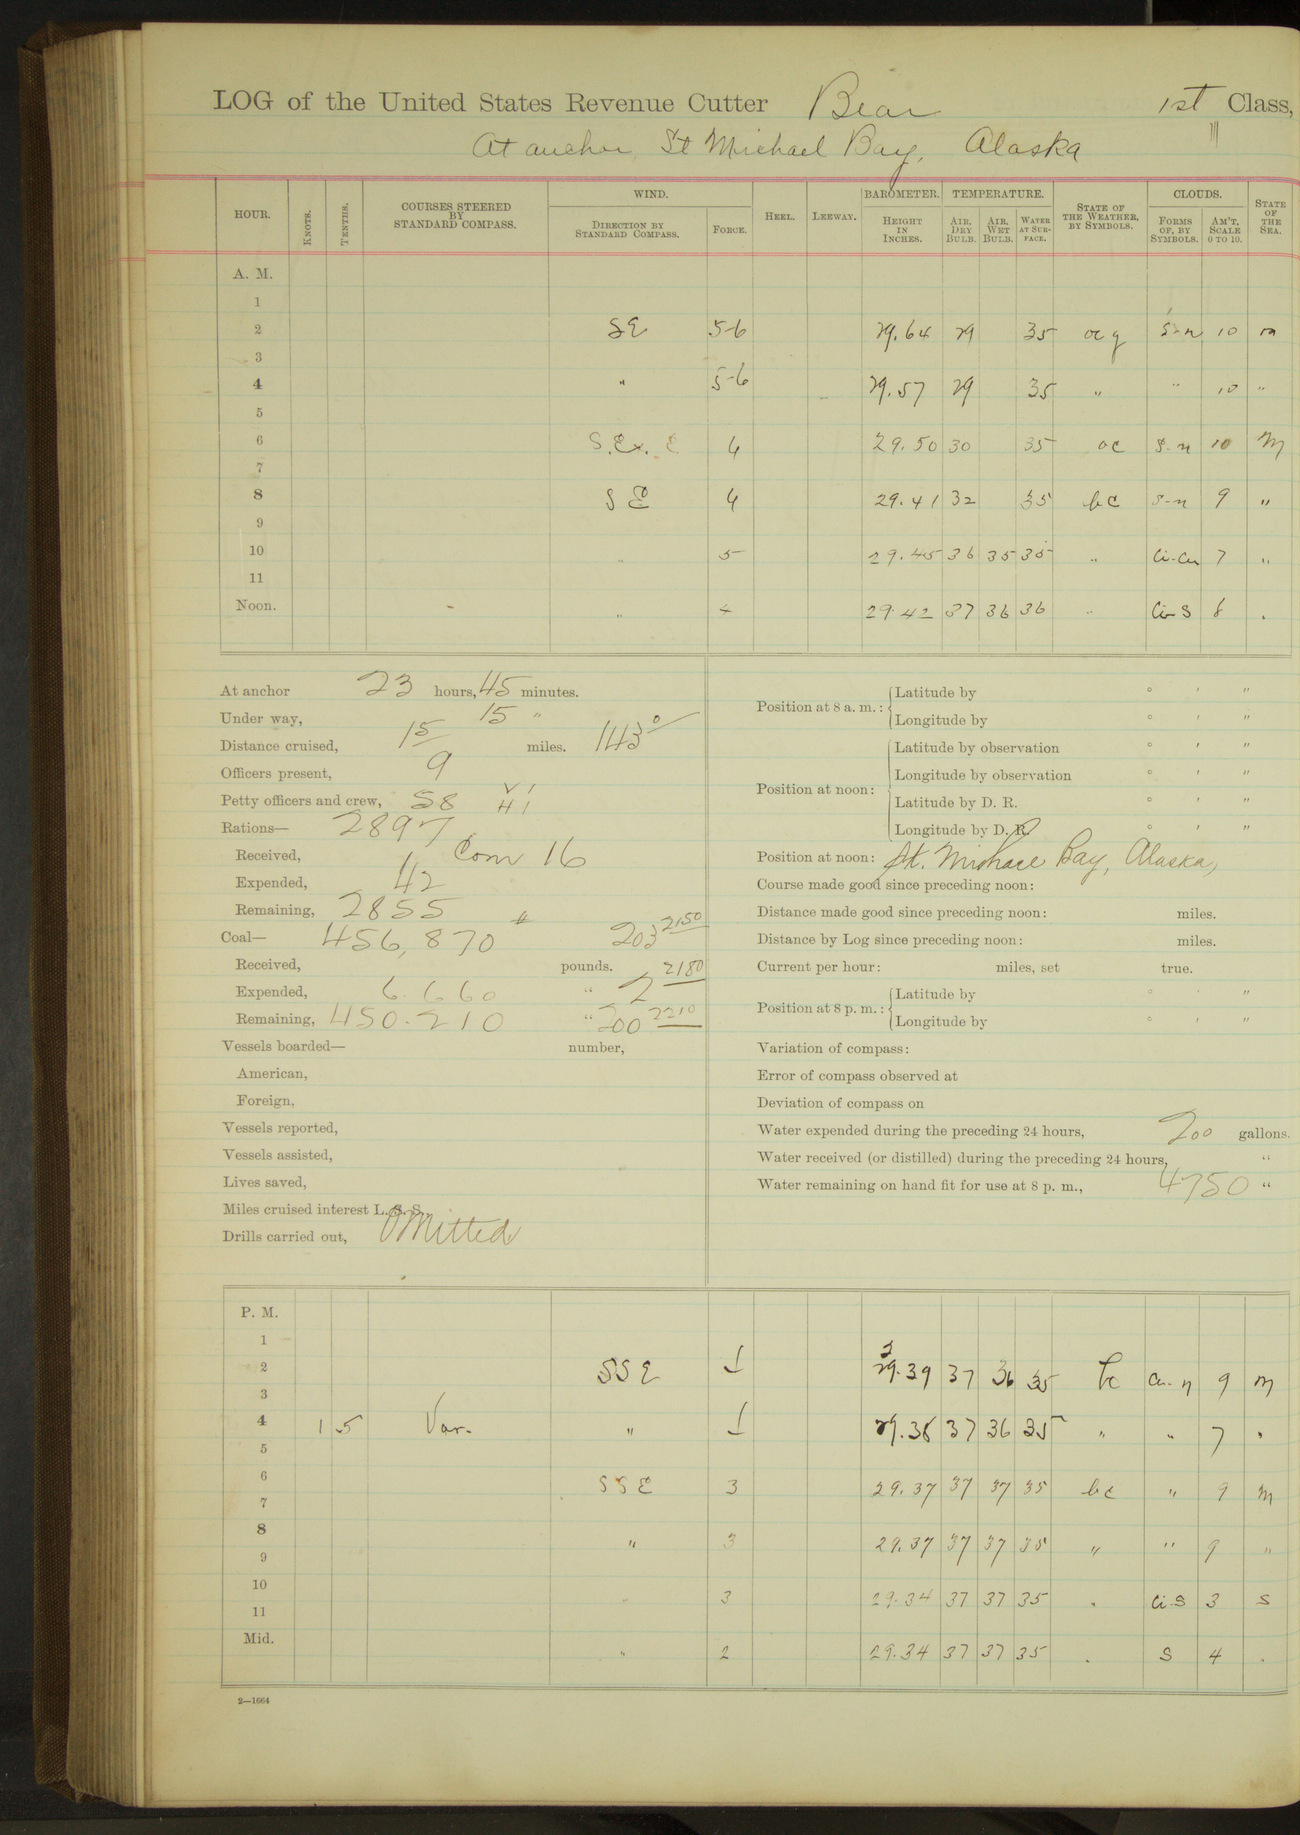 LOG of the United States Revenue Cutter Bear 1st Class,
At anchor St Michael Bay, Alaska
HOUR. KNOTS. TENTHS. COURSES STEERED BY STANDARD COMPASS. WIND. DIRECTION BY STANDARD COMPASS. FORCE. HEEL. LEEWAY. BAROMETER. HEIGHT IN INCHES. TEMPERATURE. AIR, DRY BULB. AIR, WET BULB. WATER AT SURFACE. STATE OF THE WEATHER, BY SYMBOLS. CLOUDS. FORMS OF, BY SYMBOLS. AM'T, SCALE 0 TO 10. STATE OF THE SEA.
A. M.
1
2 SE 5-6 29.64 29 35 ocq S-n 10 m
3
4 " 5-6 29.57 29 35 " " 10 "
5
6 S.Ex.E 4 29.50 30 35 oc S-n 10 M
7
8 SE 4 29.41 32 35 bc S-n 9 "
9
10 " 5 29.45 36 35 35 " Ci-Cu 7 "
11
Noon. " 4 29.42 37 36 36 " Ci-S 8 .
At anchor 23 hours, 45 minutes.
Under way, 15 "
Distance cruised, 15 miles. 143°
Officers present, 9
Petty officers and crew, 58
Rations— 2897
Received, Com 16
Expended, 42
Remaining, 2855
Coal— 456,870 # 203 2150
Received, pounds. 2180
Expended, 6.660 " 2
Remaining, 450.210 " 200 2210
Vessels boarded— number,
American,
Foreign,
Vessels reported,
Vessels assisted,
Lives saved,
Miles cruised interest L. S. S.
Drills carried out, Omitted
Position at 8 a. m.: Latitude by ° ' "
Longitude by ° ' "
Position at noon: Latitude by observation ° ' "
Longitude by observation ° ' "
Latitude by D. R. ° ' "
Longitude by D. R. ° ' "
Position at noon: St. Michael Bay, Alaska,
Course made good since preceding noon:
Distance made good since preceding noon: miles.
Distance by Log since preceding noon: miles.
Current per hour: miles, set true.
Position at 8 p. m.: Latitude by ° ' "
Longitude by ° ' "
Variation of compass:
Error of compass observed at
Deviation of compass on
Water expended during the preceding 24 hours, 200 gallons.
Water received (or distilled) during the preceding 24 hours, "
Water remaining on hand fit for use at 8 p. m., 4750 "
P. M.
1
2 SSE 1 29.39 37 36 35 bc Cu-n 9 m
3
4 1 5 Var. " 1 29.38 37 36 35 " " 7 "
5
6 SSE 3 29.37 37 37 35 bc " 9 m
7
8 " 3 29.37 37 37 35 " " 9 "
9
10 " 3 29.34 37 37 35 . Ci-S 3 S
11
Mid. " 2 29.34 37 37 35 . S 4 .
2—1664